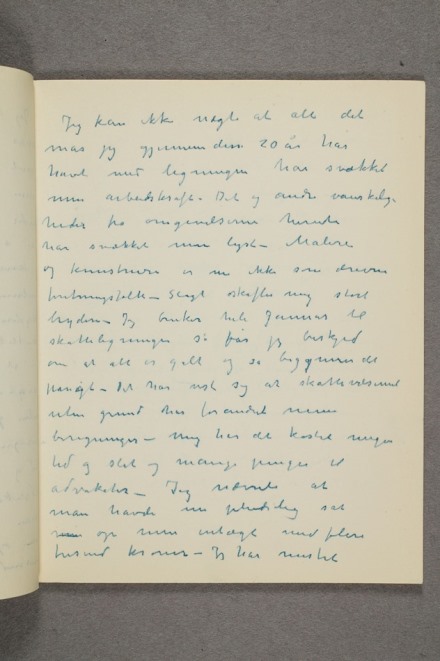 Jeg kan ikke nægte at alt det
mas jeg gjennem disse 20 år har
havt med ligningen har svækket
min arbeidskraft – Det og andre vanskelig-
heder fra omgivelserne herude
har svækket min lyst – Malere
og kunstnere er nu ikke som drevne
forretningsfolk – Sligt skaffer mig stort
bryderi – Jeg bruker hele Januar til
skatteligningen så får jeg beskjed
om at alt er galt og så begynner det
påny – Det har vist sig at skattevæsenet
uten grund har forandret mine
beregninger – mig har det kostet megen
tid og slit og mange penger til
advokater – Jeg nævnte at
man havde en pludselig sat
op min indtægt med flere
tusind kroner – Jeg har mistet